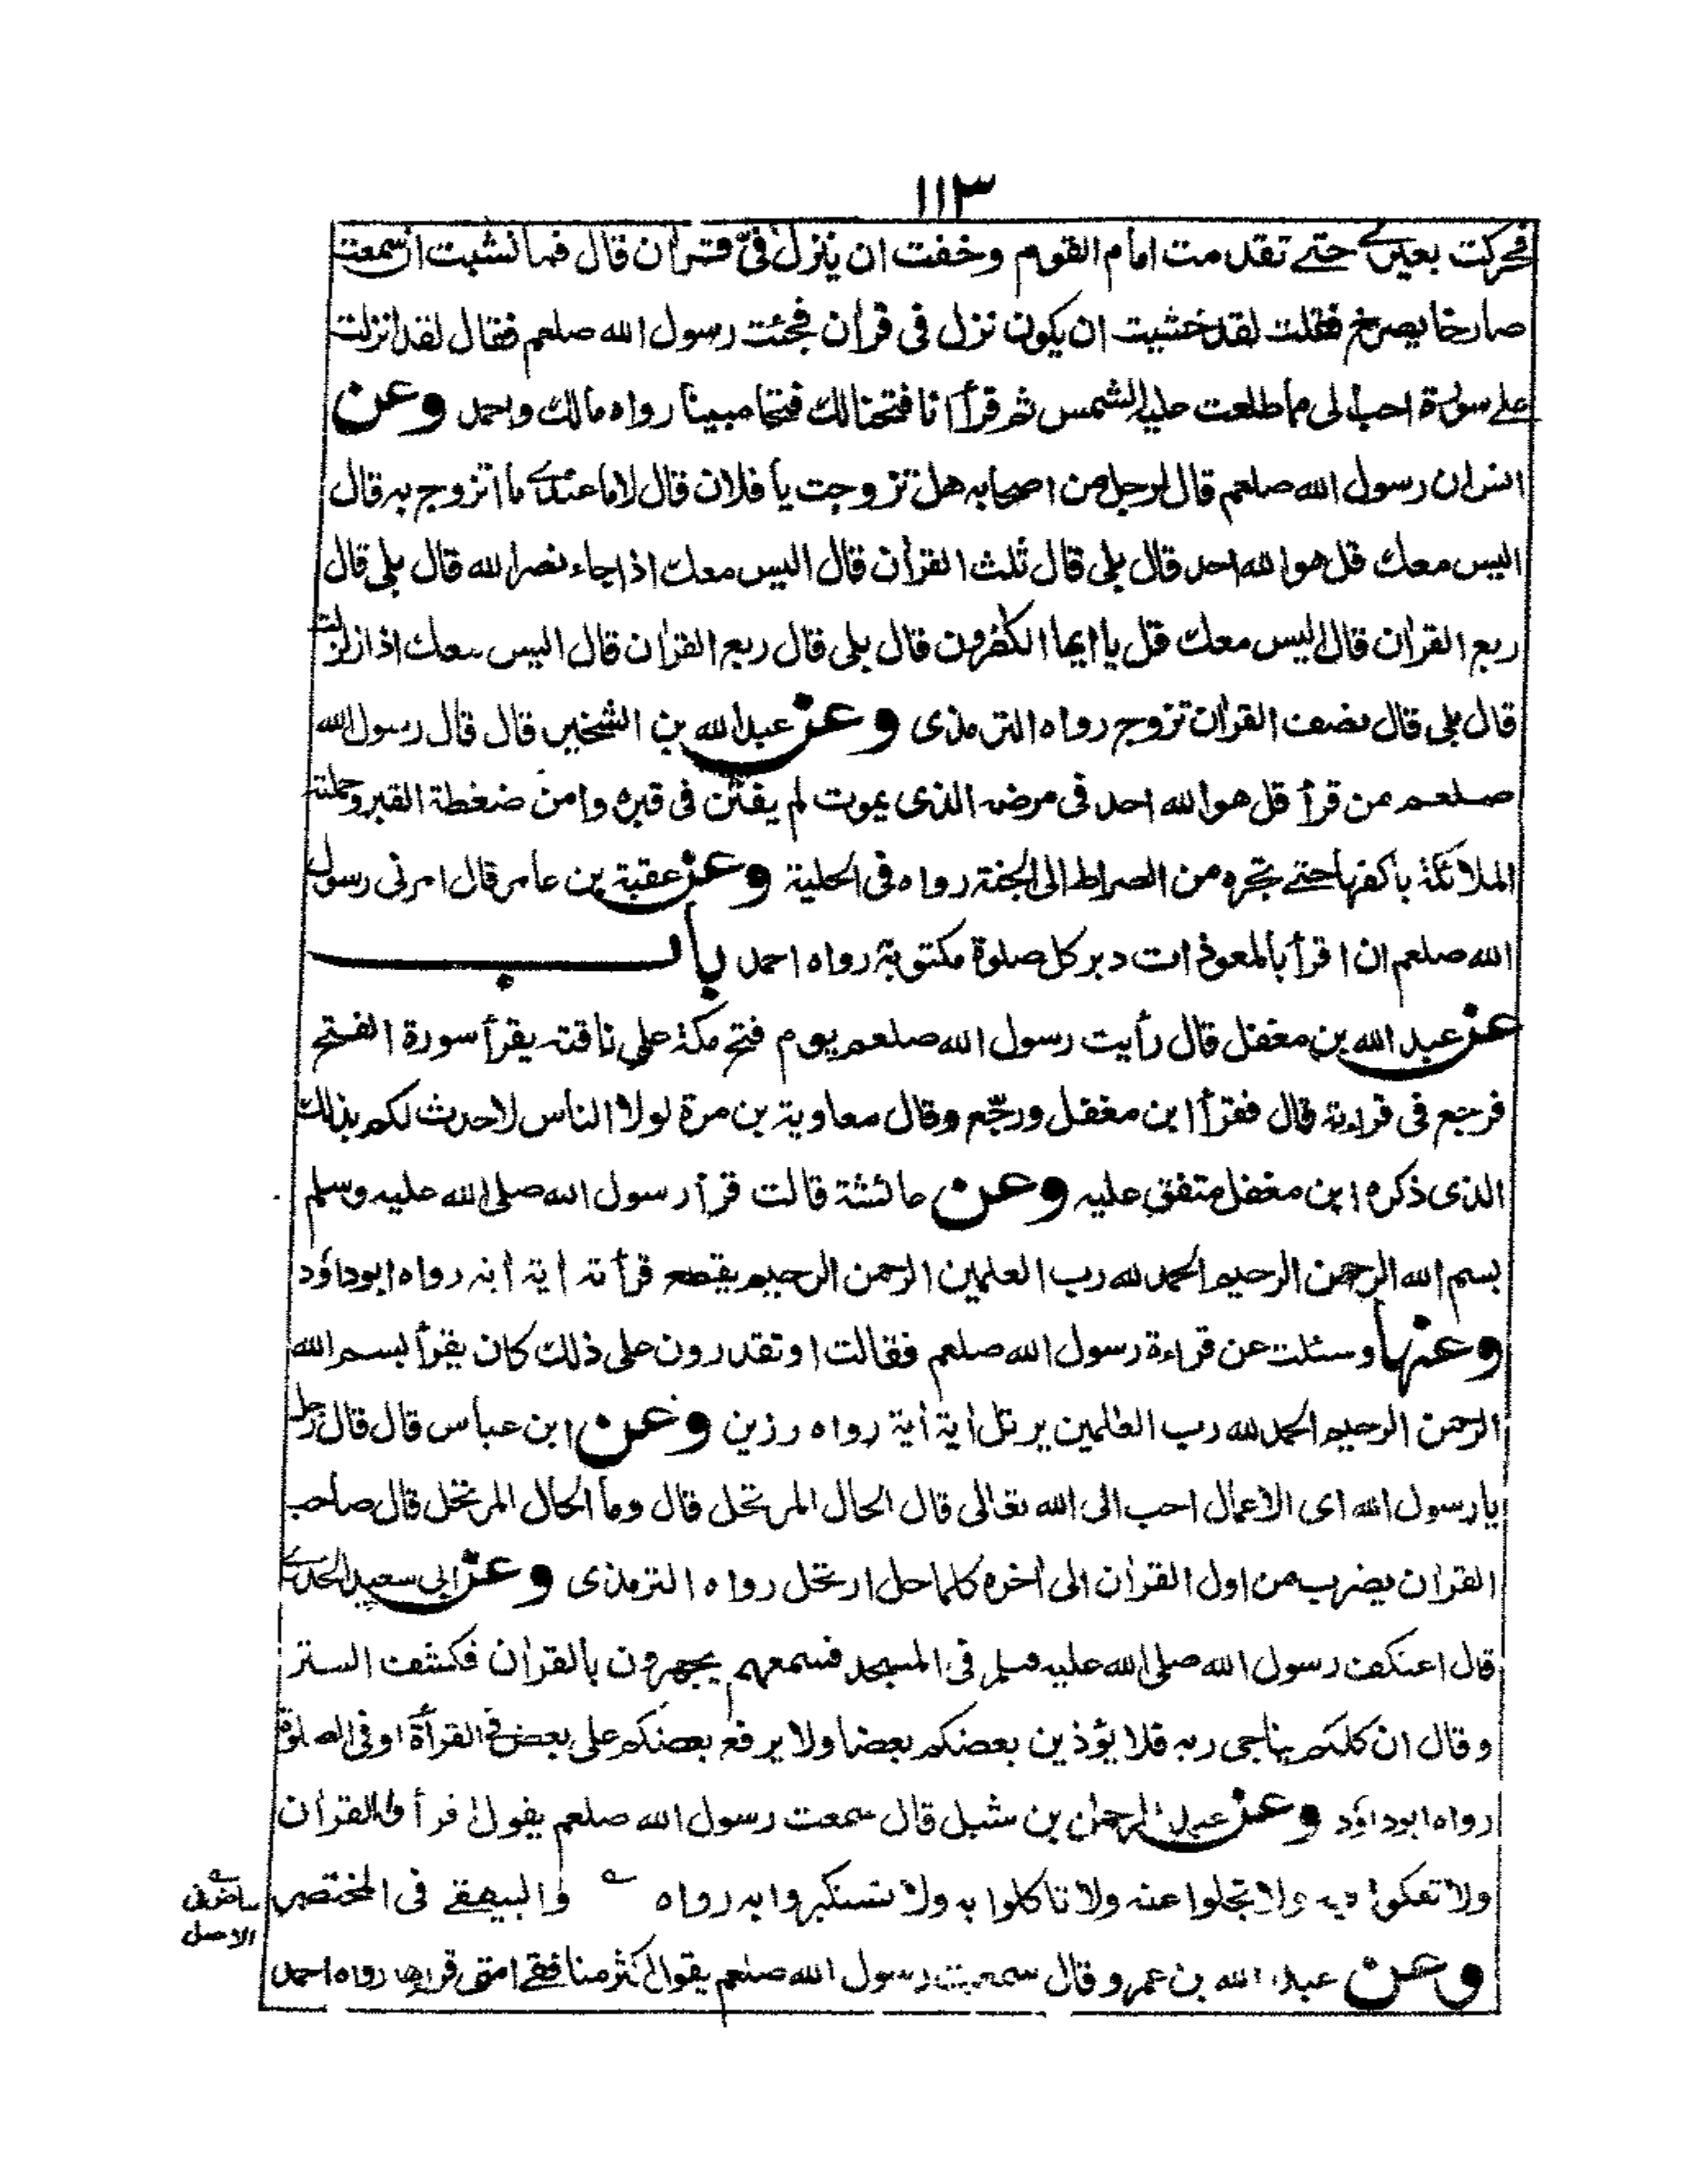 ١١٣
فحركت بعيرى حتى تقدمت امام القوم وخفت ان ينزل فىّ قران قال فما نشبت ان سمعت
صارخا يصرخ فقلت لقد خشيت ان يكون نزل فى قران فجئت رسول الله صلعم فقال لقد انزلت
على سورة احب الى مما طلعت عليه الشمس ثم قرأ انا فتحنا لك فتحا مبينا رواه مالك واحمد وعن
انس ان رسول الله صلعم قال لرجل من اصحابه هل تزوجت يا فلان قال لا ما عندى ما اتزوج به قال
اليس معك قل هو الله احد قال بلى قال ثلث القرأن قال اليس معك اذا جاء نصر الله قال بلى قال
ربع القران قال اليس معك قل يا ايها الكفرون قال بلى قال ربع القران قال اليس معك اذا زلزلت
قال بلى قال نصف القران تزوج رواه الترمذى وعن عبد الله بن الشخير قال قال رسول الله
صلعم من قرأ قل هو الله احد فى مرضه الذى يموت لم يفتن فى قبره وامن ضغطة القبر وحملته
الملائكة باكفها حتى تجره من الصراط الى الجنة رواه فى الحلية وعن عقبة بن عامر قال امرنى رسول
الله صلعم ان اقرأ بالمعوذات دبر كل صلوة مكتوبة رواه احمد باب
عن عبد الله بن مغفل قال رأيت رسول الله صلعم يوم فتح مكة على ناقته يقرأ سورة الفتح
فرجع فى قراءته قال فقرأ ابن مغفل ورجّع وقال معاوية بن مرة لولا الناس لاحدث لكم بذلك
الذى ذكره ابن مغفل متفق عليه وعن عائشة قالت قرأ رسول الله صلى الله عليه وسلم
بسم الله الرحمن الرحيم الحمد لله رب العلمين الرحمن الرحيم يقطع قرأته اية اية رواه ابو داؤد
وعنها وسئلت عن قراءة رسول الله صلعم فقالت او تقدرون على ذلك كان يقرأ بسم الله
الرحمن الرحيم الحمد لله رب العلمين يرتل أية أية رواه رزين وعن ابن عباس قال قال رجل
يا رسول الله اى الاعمال احب الى الله تعالى قال الحال المرتحل قال وما الحال المرتحل قال صاحب
القران يضرب من اول القران الى أخره كلما حل ارتحل رواه الترمذى وعن ابى سعيد الخدرى
قال اعتكف رسول الله صلى الله عليه وسلم فى المسجد فسمعهم يجهرون بالقران فكشف الستر
وقال ان كلكم يناجى ربه فلا يؤذين بعضكم بعضا ولا يرفع بعضكم على بعض فى القرأة او فى الصلوة
رواه ابو داؤد وعن عبد الرحمن بن شبل قال سمعت رسول الله صلعم يقول اقرأوا القران
ولا تغلوا فيه ولا تجفوا عنه ولا تاكلوا به ولا تستكبروا به رواه والبيهقى فى المختصر
بياض فى
الاصل
وعن عبد الله بن عمرو قال سمعت رسول الله صلعم يقول اكثر منافقى امتى قراءها رواه احمد